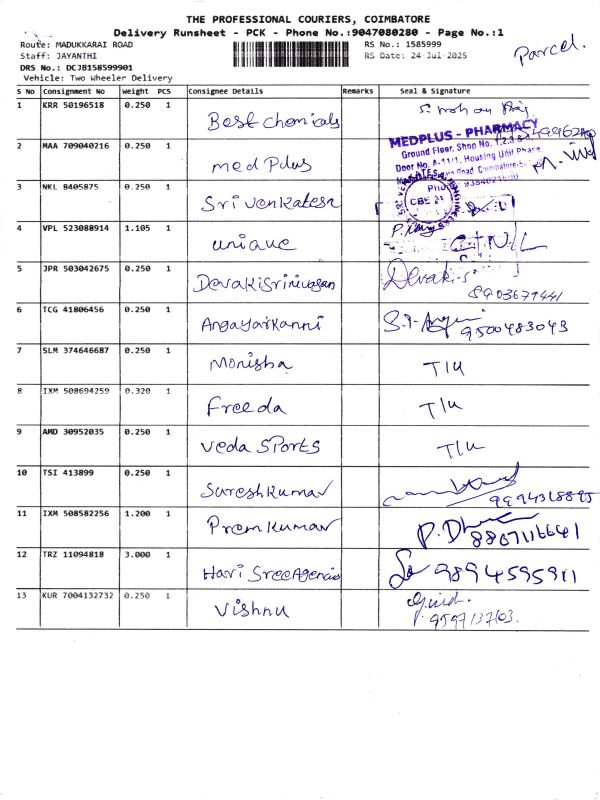 THE PROFESSIONAL COURIERS, COIMBATORE
Delivery Runsheet - PCK - Phone No.:9047080280 - Page No.:1
Route: MADUKKARAI ROAD RS No.: 1585999 Parcel.
Staff: JAYANTHI RS Date: 24-Jul-2025
DRS No.: DCJB158599901
Vehicle: Two Wheeler Delivery
S No Consignment No Weight PCS Consignee Details Remarks Seal & Signature
1 KRR 50196518 0.250 1 Best chemicals
2 MAA 709040216 0.250 1 med Plus
MEDPLUS - PHARMACY
Ground Floor, Shop No. 1,2,3 &
Door No. A-11/1, Housing Unit Phase
3 NKL 8405875 0.250 1 Sri venkatesa
CBE 21
4 VPL 523088914 1.105 1 uniave
5 JPR 503042675 0.250 1 Devaki Srinivasan Devaki-s
8903679441
6 TCG 41806456 0.250 1 Angayarkanni 9500483043
7 SLM 374646687 0.250 1 Monisha T/U
8 IXM 508694259 0.320 1 Freeda T/U
9 AMD 30952035 0.250 1 Veda SPORTS T/U
10 TSI 413899 0.250 1 Sureshkumar
11 IXM 508582256 1.200 1 Premkumar 8867116641
12 TRZ 11094818 3.000 1 Hari Sree Agencies 9894595911
13 KUR 7004132732 0.250 1 Vishnu
9597137103.